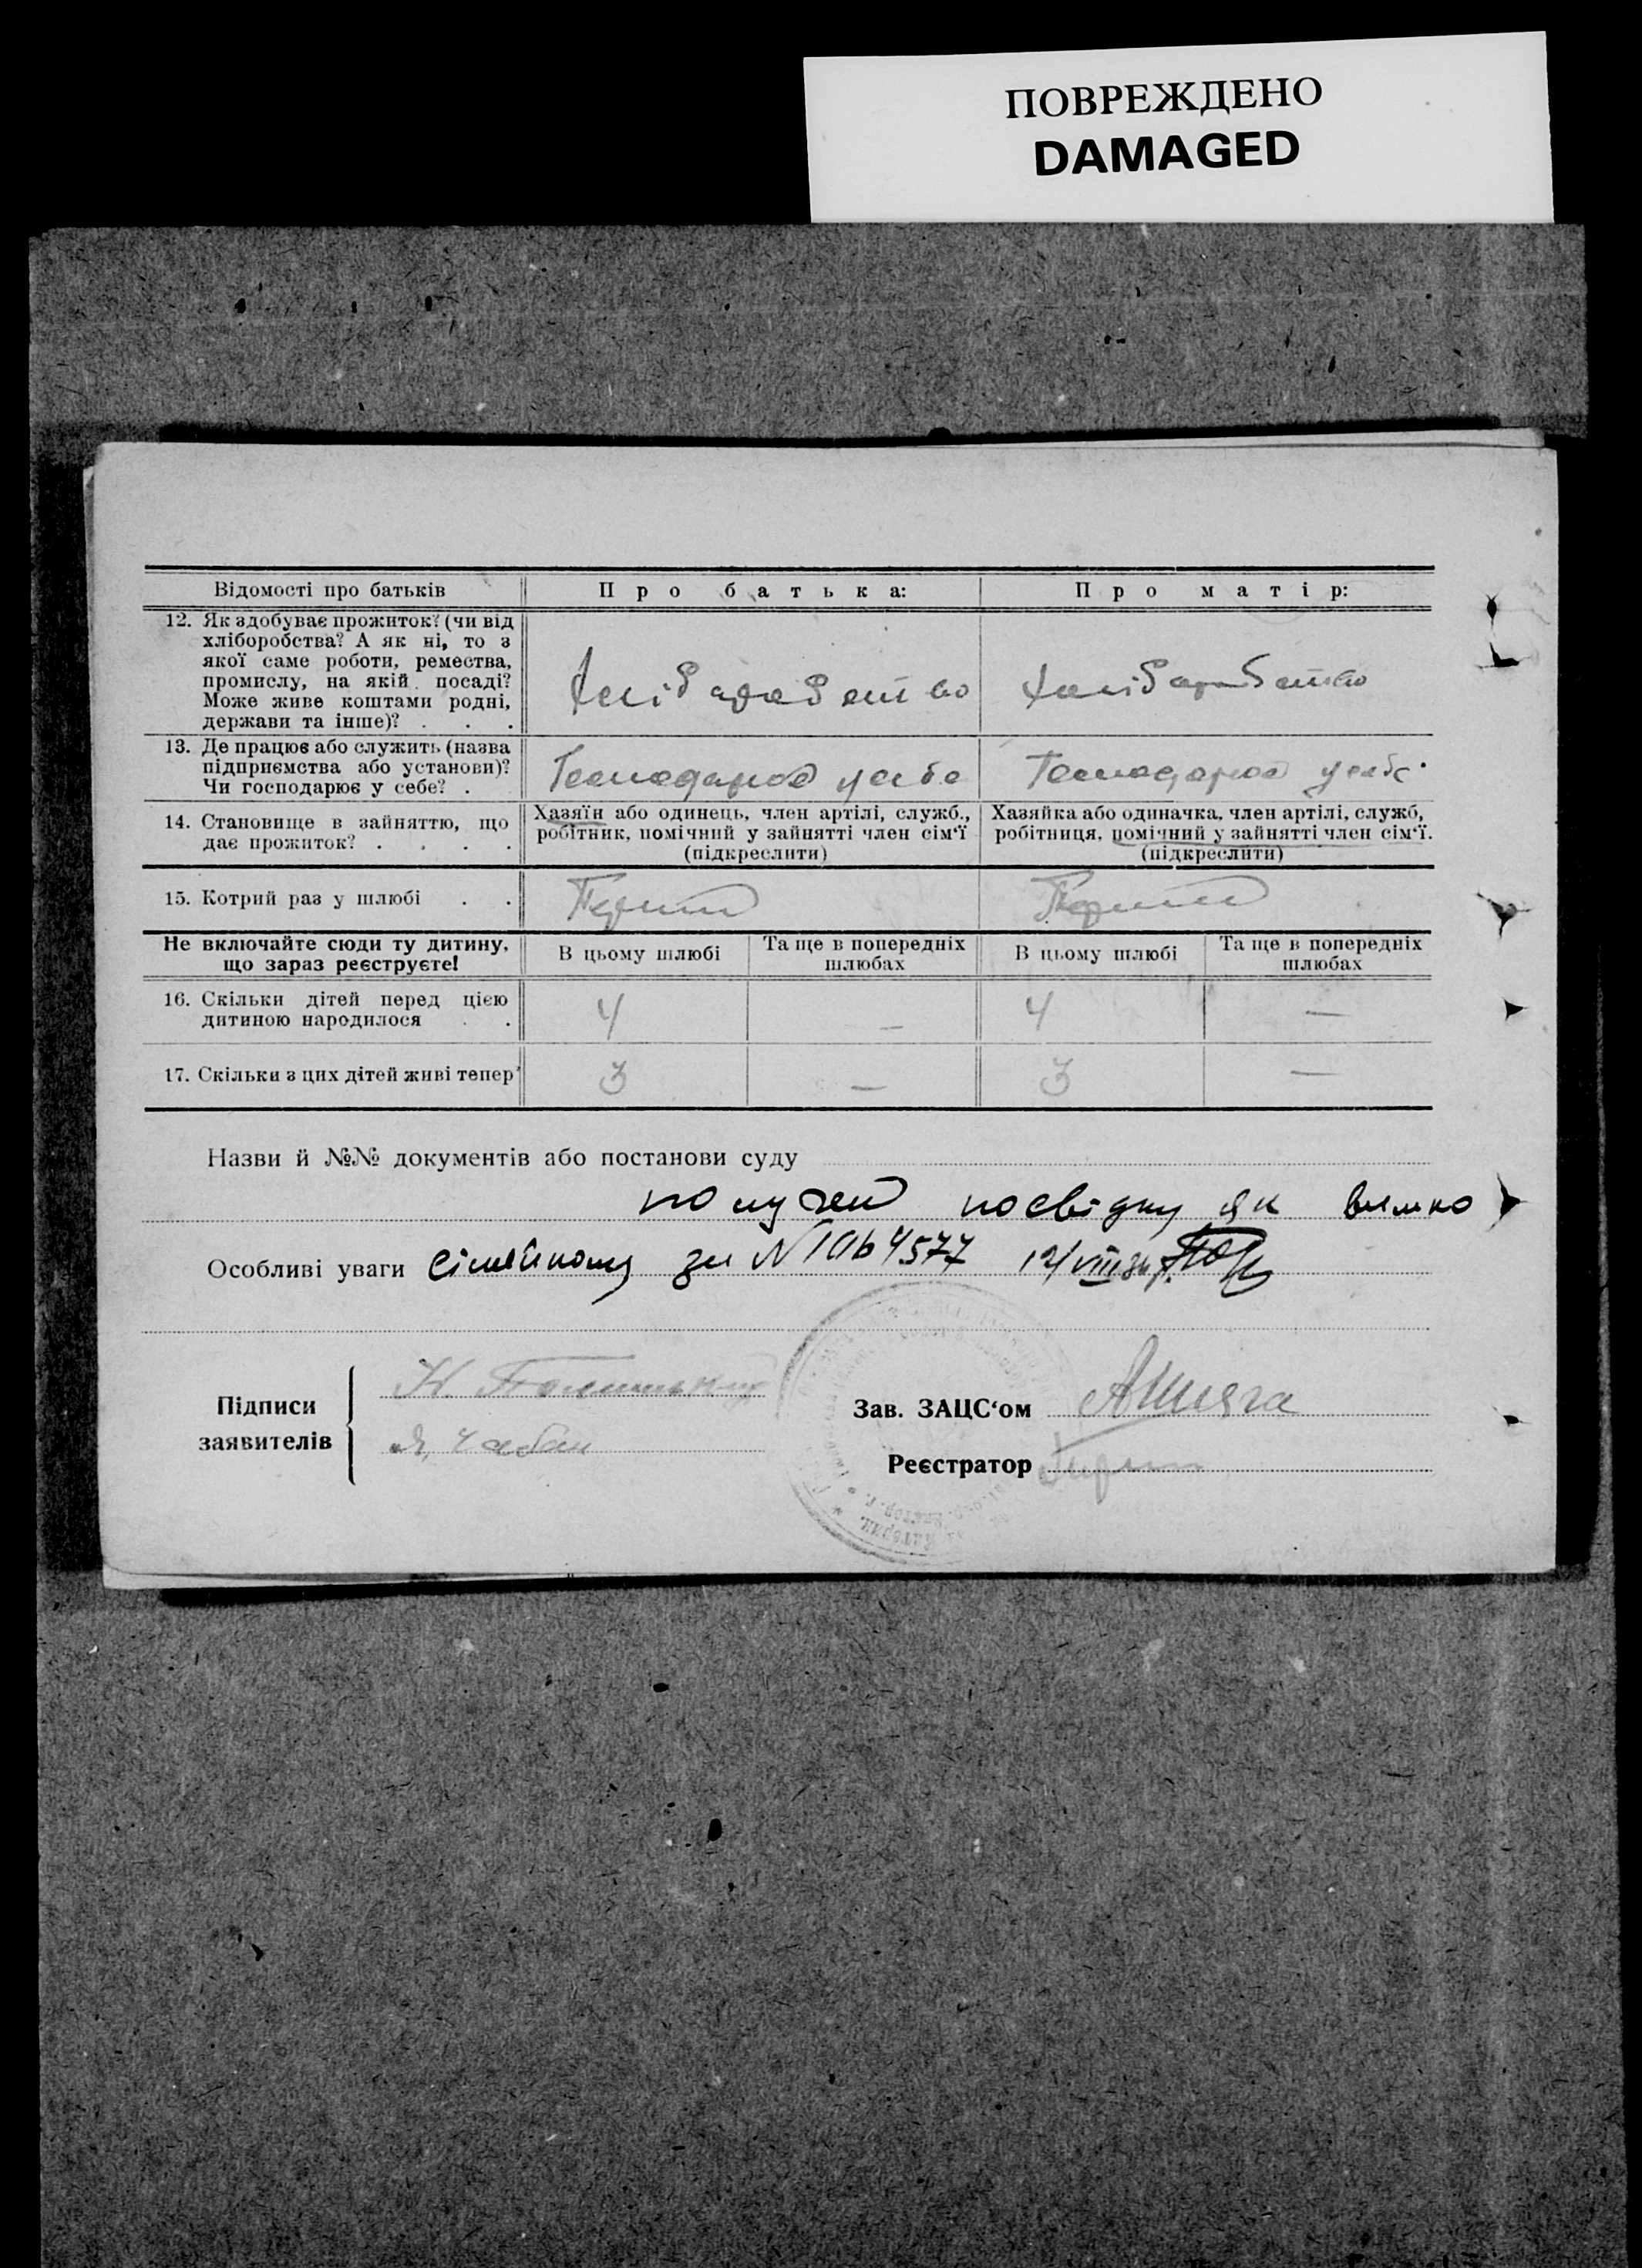 ПОВРЕЖДЕНО
DAMAGED
Відомості про батьків
П р о б а т ь к а:
П р о м а т і р:
12. Як здобуває прожиток? (чи від
хліборобства? А як ні, то з
якої саме роботи, ремества,
промислу, на якій посаді?
Може живе коштами родні,
держави та інше)? . . .
Хліборобство
хліборобство
13. Де працює або служить (назва
підприємства або установи)?
Чи господарює у себе? .
Господарює у себе
Господарює у себе
14. Становище в зайняттю, що
дає прожиток? . . . .
Хазяїн або одинець, член артілі, служб.,
робітник, помічний у зайнятті член сім'ї
(підкреслити)
Хазяйка або одиначка, член артілі, служб,
робітниця, помічний у зайнятті член сім'ї.
(підкреслити)
15. Котрий раз у шлюбі . .
Перший
Перший
Не включайте сюди ту дитину,
що зараз реєструєте!
В цьому шлюбі
Та ще в попередніх
шлюбах
В цьому шлюбі
Та ще в попередніх
шлюбах
16. Скільки дітей перед цією
дитиною народилося . .
4 — 4 —
17. Скільки з цих дітей живі тепер?
3 — 3 —
Назви й №№ документів або постанови суду
посвідку як
Особливі уваги сімейному за N
Підписи
заявителів
Я. Чабан
Зав. ЗАЦС'ом
Реєстратор